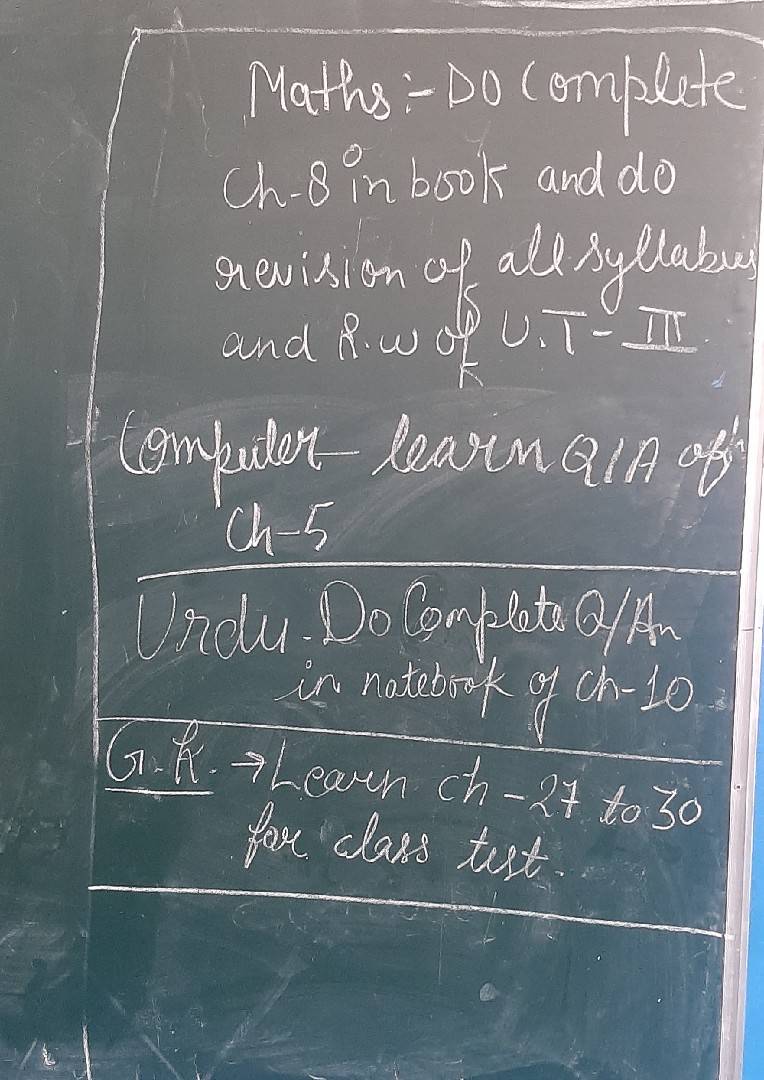 Maths :- DO Complete
Ch-8 in book and do
revision of all syllabus
and R.W of U.T - III
Computer - learn Q/A of
Ch-5
Urdu - Do Complete Q/An
in notebook of Ch-10
G.K. → Learn ch - 27 to 30
for class test.